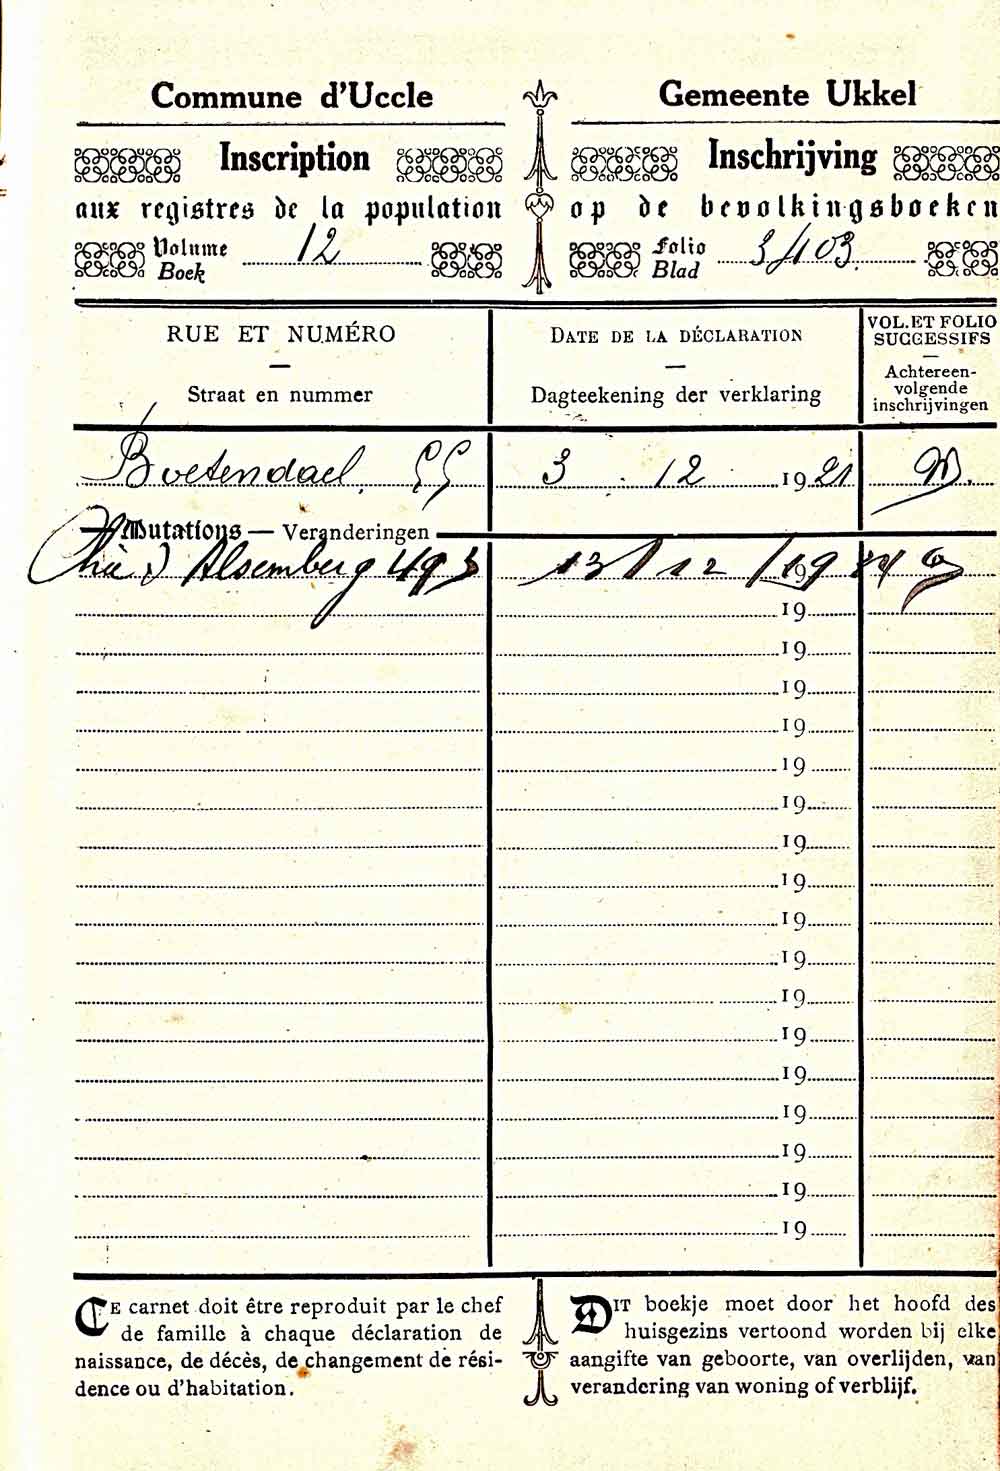 Commune d'Uccle
Inscription
aux registres de la population
Volume
Boek
12
Gemeente Ukkel
Inschrijving
op de bevolkingsboeken
Folio
Blad
RUE ET NUMÉRO
Straat en nummer
DATE DE LA DÉCLARATION
Dagteekening der verklaring
VOL. ET FOLIO
SUCCESSIFS
Achtereen-
volgende
inschrijvingen
Boetendael 55 3 12 1921
Mutations — Veranderingen
Alsemberg 13/12/19
19
19
19
19
19
19
19
19
19
19
19
19
19
19
19
19
19
CE carnet doit être reproduit par le chef
de famille à chaque déclaration de
naissance, de décès, de changement de rési-
dence ou d'habitation.
DIT boekje moet door het hoofd des
huisgezins vertoond worden bij elke
aangifte van geboorte, van overlijden, van
verandering van woning of verblijf.